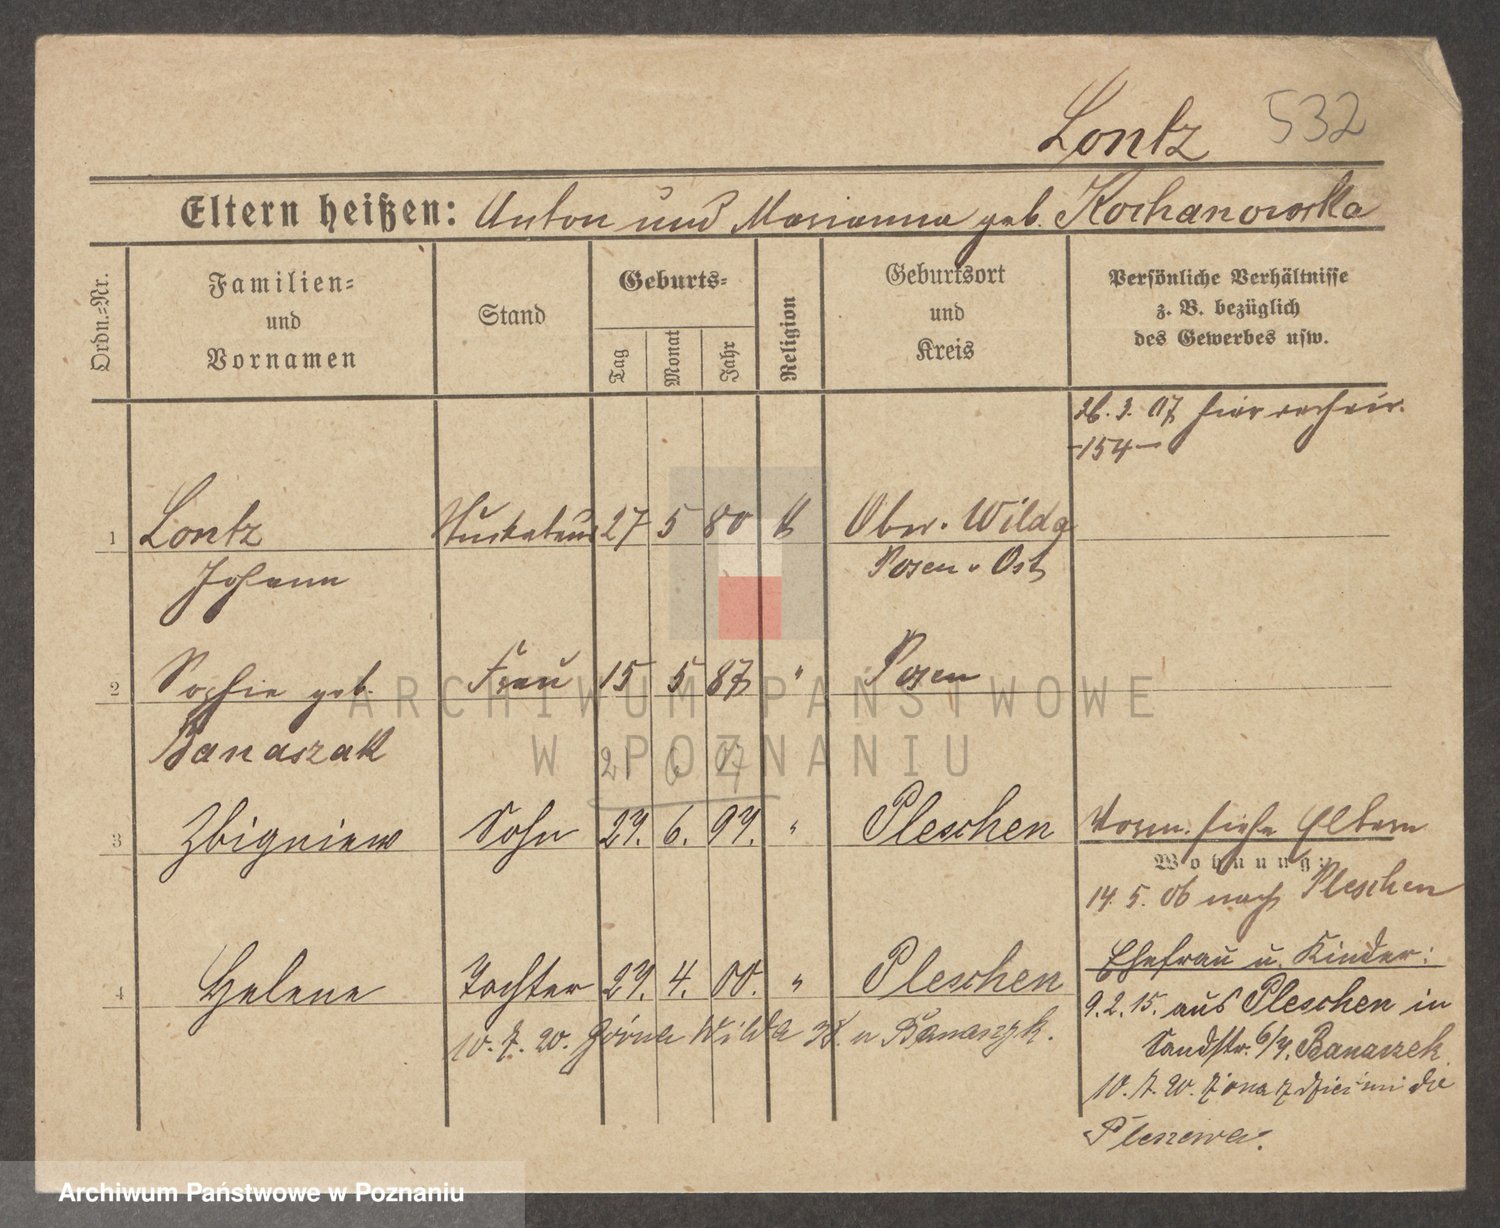 Lontz 532
Eltern heißen: Anton und Marianna geb. Kochanowska
Ordn.-Nr.
Familien-
und
Vornamen
Stand
Geburts-
Tag
Monat
Jahr
Religion
Geburtsort
und
Kreis
Persönliche Verhältnisse
z. B. bezüglich
des Gewerbes usw.
26. 3. 07 hier
-154-
1 Lontz Stuckateur 27 5 80 k Ober-Wilda
Johann Posen-Ost
2 Sophie geb. Frau 15 5 87 " Posen
Banaszak
21 6 07
3 Zbigniew Sohn 27. 6. 97. " Pleschen
Vorm. siehe Eltern
Wohnung:
14. 5. 06 nach Pleschen
4 Helene Tochter 27. 4. 00. " Pleschen
Ehefrau u. Kinder:
9. 2. 15. aus Pleschen in
Sandstr. 6/7. Banaszek
10. 7. 20. Górna Wilda u Banaszyk.
10. 7. 20. Żona z dziećmi do
Pleszewa.
ARCHIWUM PAŃSTWOWE
W POZNANIU
Archiwum Państwowe w Poznaniu